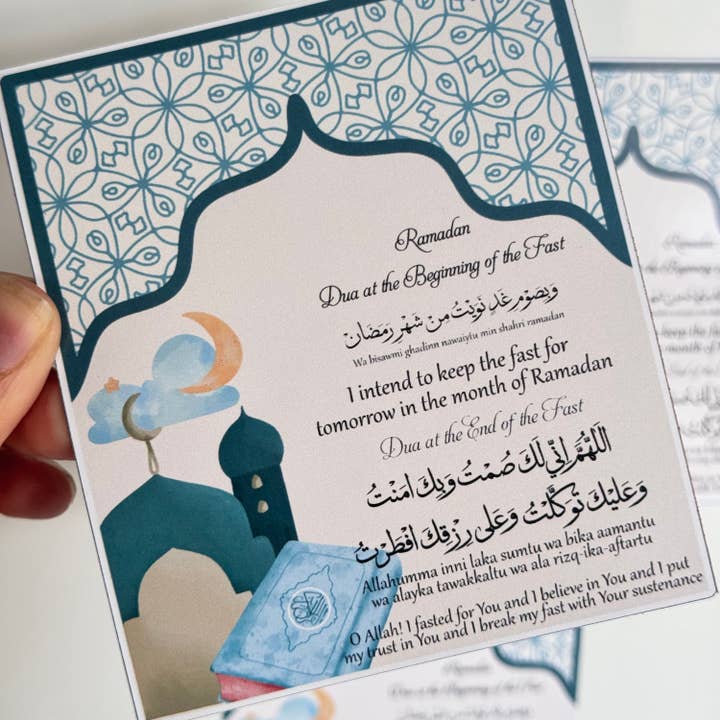 Ramadan
Dua at the Beginning of the Fast
وَبِصَوْمِ غَدٍ نَوَيْتُ مِنْ شَهْرِ رَمَضَانَ
Wa bisawmi ghadinn nawaiytu min shahri ramadan
I intend to keep the fast for
tomorrow in the month of Ramadan
Dua at the End of the Fast
اَللّٰهُمَّ اِنِّى لَكَ صُمْتُ وَبِكَ امَنْتُ
وَعَلَيْكَ تَوَكَّلْتُ وَعَلَى رِزْقِكَ اَفْطَرْتُ
Allahumma inni laka sumtu wa bika aamantu
wa alayka tawakkaltu wa ala rizq-ika-aftartu
O Allah! I fasted for You and I believe in You and I put
my trust in You and I break my fast with Your sustenance